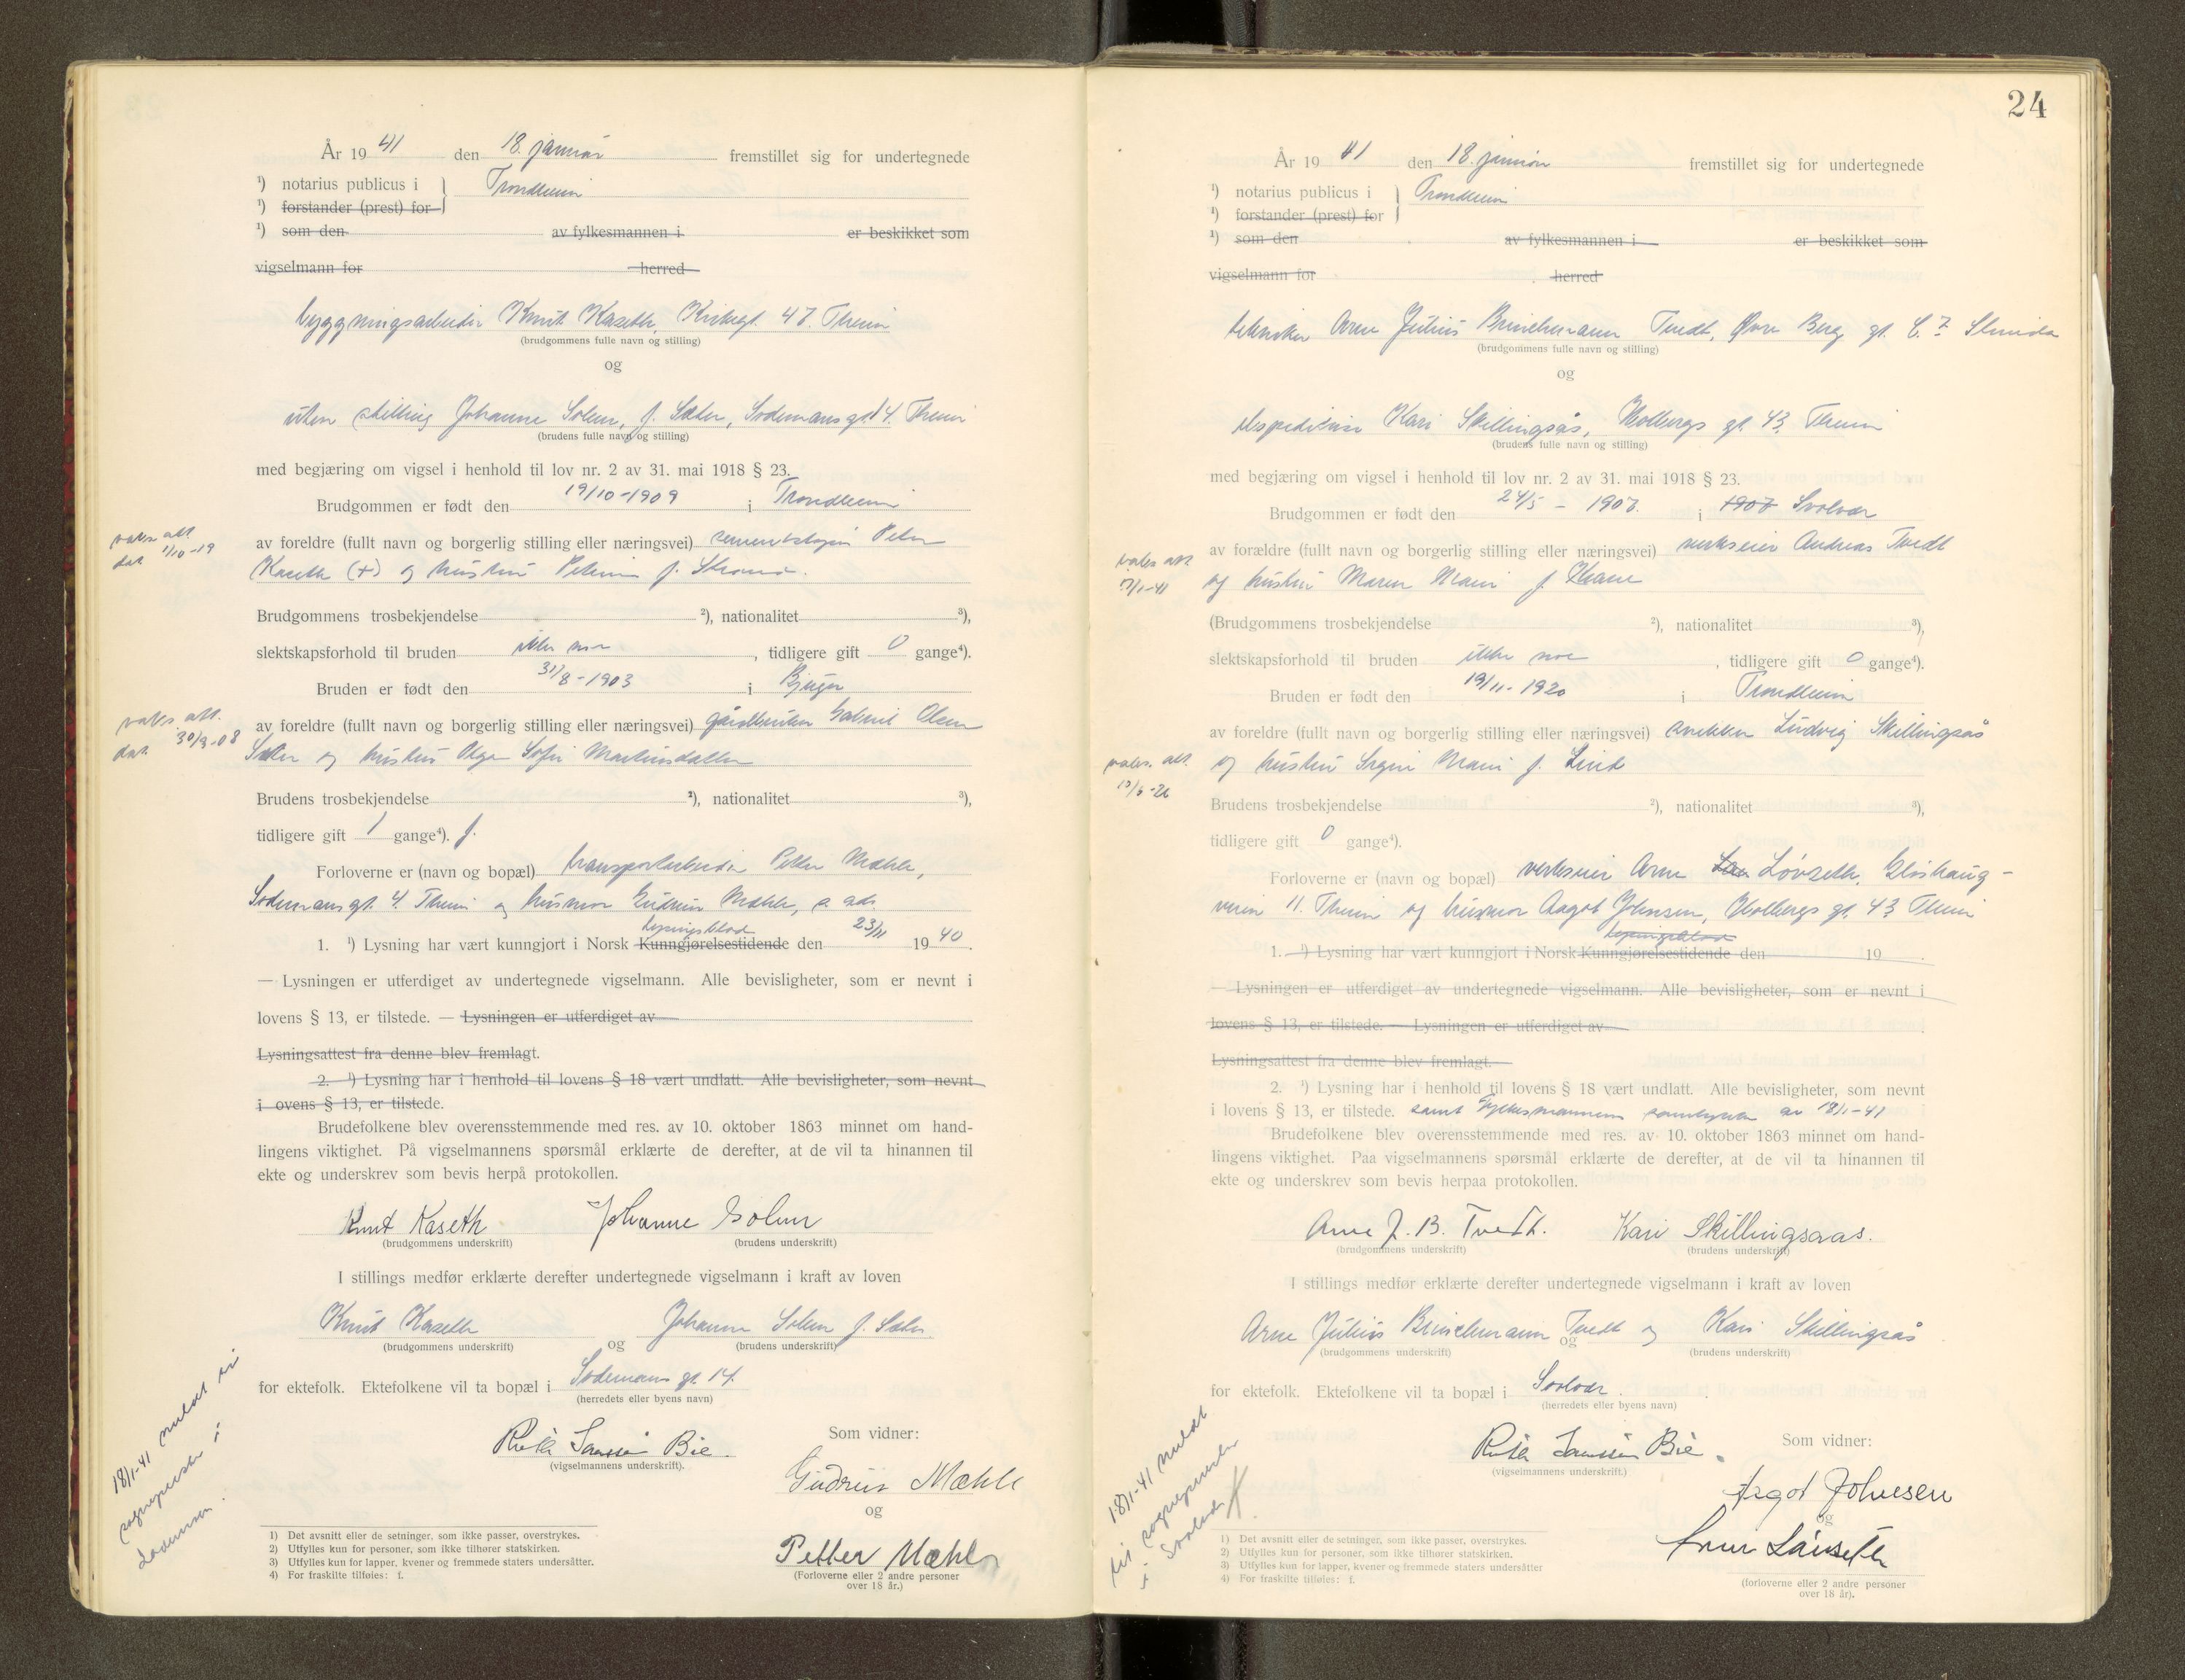 År 19 41 den 18. januar fremstillet sig for undertegnede
¹) notarius publicus i Trondheim
¹) forstander (prest) for
¹) som den av fylkesmannen i er beskikket som
vigselmann for herred
byggningsarbeider Knut Kaseth, Kirkegt. 47. Theim
(brudgommens fulle navn og stilling)
og
uten stilling Johanne Solem, f. Sæter, Sodemansgt. 14. Theim
(brudens fulle navn og stilling)
med begjæring om vigsel i henhold til lov nr. 2 av 31. mai 1918 § 23.
Brudgommen er født den 19/10-1909 i Trondheim
vaks. att.
dat. 1/10-19
av foreldre (fullt navn og borgerlig stilling eller næringsvei) sementstøper Peter
Kaseth (+) og hustru Petrine f. Strand.
Brudgommens trosbekjendelse ²), nationalitet ³),
slektskapsforhold til bruden ikke noe, tidligere gift 0 gange⁴).
Bruden er født den 31/8-1903 i Bjugn
vaks. att.
dat. 30/9-08
av foreldre (fullt navn og borgerlig stilling eller næringsvei) gårdbruker Gabriel Olsen
Sæter og hustru Olga Sofie Martinsdatter
Brudens trosbekjendelse ²), nationalitet ³),
tidligere gift 1 gange⁴). f.
Forloverne er (navn og bopæl) transportarbeider Petter Mæhle,
Sodemansgt. 4. Theim og husmor Gudrun Mæhle, s. ads.
lysingsblad
1. ¹) Lysning har vært kunngjort i Norsk Kunngjørelsestidende den 23/11 1940.
— Lysningen er utferdiget av undertegnede vigselmann. Alle bevisligheter, som er nevnt i
lovens § 13, er tilstede. — Lysningen er utferdiget av
Lysningsattest fra denne blev fremlagt.
2. ¹) Lysning har i henhold til lovens § 18 vært undlatt. Alle bevisligheter, som nevnt
i ovens § 13, er tilstede.
Brudefolkene blev overensstemmende med res. av 10. oktober 1863 minnet om hand-
lingens viktighet. På vigselmannens spørsmål erklærte de derefter, at de vil ta hinannen til
ekte og underskrev som bevis herpå protokollen.
Knut Kaseth Johanne Solem
(brudgommens underskrift) (brudens underskrift)
I stillings medfør erklærte derefter undertegnede vigselmann i kraft av loven
Knut Kaseth og Johanne Solem f. Sæter
(brudgommens underskrift) (brudens underskrift)
for ektefolk. Ektefolkene vil ta bopæl i Sodemans gt. 14.
(herredets eller byens navn)
18/1-41 meldt til
sogneprester i
Lademoen.
Ruth Janssen Bie.
(vigselmannens underskrift).
Som vidner:
Gudrun Mæhle
og
Petter Mæhle
(Forloverne eller 2 andre personer
over 18 år.)
1) Det avsnitt eller de setninger, som ikke passer, overstrykes.
2) Utfylles kun for personer, som ikke tilhører statskirken.
3) Utfylles kun for lapper, kvener og fremmede staters undersåtter.
4) For fraskilte tilføles: f.
24
År 19 41 den 18. januar fremstillet sig for undertegnede
¹) notarius publicus i Trondheim
¹) forstander (prest) for
¹) som den av fylkesmannen i er beskikket som
vigselmann for herred
tekniker Arne Julius Brinchmann Tvedt, Øvre Berg gt.
(brudgommens fulle navn og stilling)
og
ekspeditrise Kari Skillingsås, Holbergs gt. 43, Theim
(brudens fulle navn og stilling)
med begjæring om vigsel i henhold til lov nr. 2 av 31. mai 1918 § 23.
Brudgommen er født den 24/5 - 1907. i 1907 Svolvær
vaks. att.
7/1-41
av forældre (fullt navn og borgerlig stilling eller næringsvei) verkseier Andreas Tvedt
og hustru Maren Marie f. Hane
(Brudgommens trosbekjendelse ²), nationalitet ³),
slektskapsforhold til bruden ikke noe, tidligere gift 0 gange⁴).
Bruden er født den 19/11-1920 i Trondheim
av foreldre (fullt navn og borgerlig stilling eller næringsvei) snekker Ludvig Skillingsås
vaks. att.
og hustru Signe Marie f. Lind
Brudens trosbekjendelse ²), nationalitet ³),
tidligere gift 0 gange⁴).
Forloverne er (navn og bopæl) verkseier Arne Løvseth, Gløshaug-
veien 11. Theim og husmor Aagot Johnsen, Holbergs gt. 43 Theim
lysingsblad
1. ¹) Lysning har vært kunngjort i Norsk Kunngjørelsestidende den 19 .
— Lysningen er utferdiget av undertegnede vigselmann. Alle bevisligheter, som er nevnt i
lovens § 13, er tilstede. — Lysningen er utferdiget av
Lysningsattest fra denne blev fremlagt.
2. ¹) Lysning har i henhold til lovens § 18 vært undlatt. Alle bevisligheter, som nevnt
i lovens § 13, er tilstede. samt Fylkesmannens samtykke av 18/1-41
Brudefolkene blev overensstemmende med res. av 10. oktober 1863 minnet om hand-
lingens viktighet. Paa vigselmannens spørsmål erklærte de derefter, at de vil ta hinannen til
ekte og underskrev som bevis herpaa protokollen.
Arne J. B. Tvedt. Kari Skillingsaas.
(brudgommens underskrift) (brudens underskrift)
I stillings medfør erklærte derefter undertegnede vigselmann i kraft av loven
Arne Julius Brinchmann Tvedt og Kari Skillingsås
og
(brudgommens underskrift) (brudens underskrift)
for ektefolk. Ektefolkene vil ta bopæl i Svolvær.
(herredets eller byens navn)
18/1-41 meldt
til sogneprester
i Svolvær
Ruth Janssen Bie.
(vigselmannens underskrift.)
Som vidner:
Aagot Johnsen
og
Arne Løvseth
(forloverne eller 2 andre personer
over 18 år).
1) Det avsnitt eller de setninger, som ikke passer, overstrykes.
2) Utfylles kun for personer, som ikke tilhører statskirken.
3) Utfylles kun for lapper, kvener og fremmede staters undersåtter
4) For fraskilte tilføles: f.